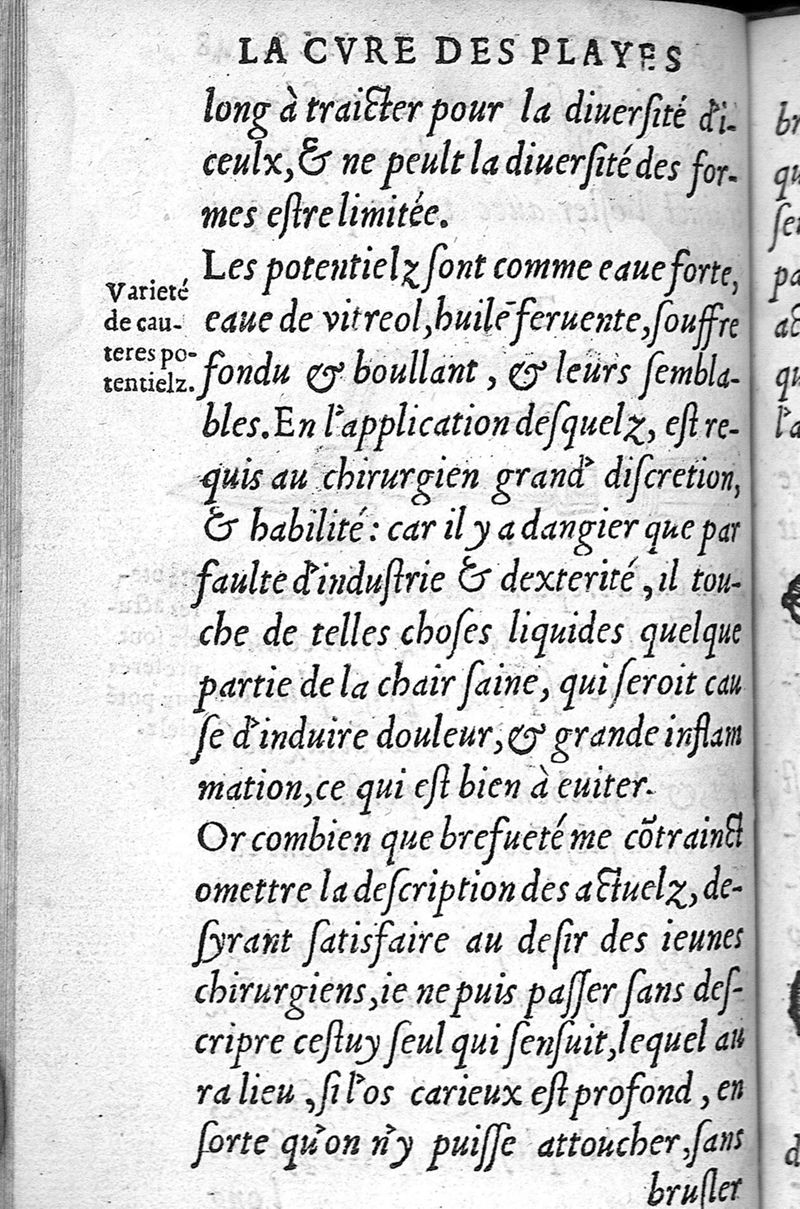 LA CVRE DES PLAYES
long à traicter pour la diuersité d'i-
ceulx, & ne peult la diuersité des for-
mes estre limitée.
Les potentielz sont comme eaue forte,
eaue de vitreol, huile feruente, souffre
fondu & boullant, & leurs sembla-
bles. En l'application desquelz, est re-
quis au chirurgien grand' discretion,
& habilité: car il y a dangier que par
faulte d'industrie & dexterité, il tou-
che de telles choses liquides quelque
partie de la chair saine, qui seroit cau
se d'induire douleur, & grande inflam
mation, ce qui est bien à euiter.
Or combien que brefueté me cõtrainct
omettre la description des actuelz, de-
syrant satisfaire au desir des ieunes
chirurgiens, ie ne puis passer sans des-
cripre cestuy seul qui sensuit, lequel au
ra lieu, si l'os carieux est profond, en
sorte qu'on n'y puisse attoucher, sans
brusler
Varieté
de cau-
teres po-
tentielz.